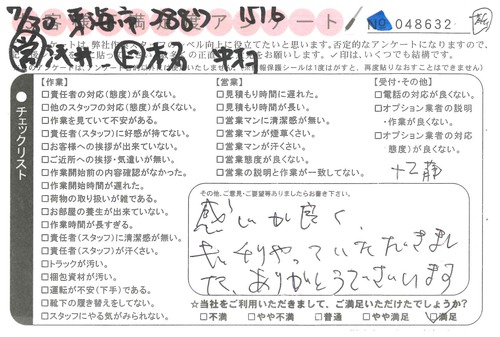 7/30 東海市
お客様満足度アンケート
No 048632
【作業】
□責任者の対応(態度)が良くない。
□他のスタッフの対応(態度)が良くない。
□作業を見ていて不安がある。
□責任者(スタッフ)に好感が持てない。
□お客様への挨拶が出来ていない。
□ご近所への挨拶・気遣いが無い。
□作業開始前の内容確認がなかった。
□作業開始時間が遅れた。
□荷物の取り扱いが雑である。
□お部屋の養生が出来ていない。
□作業時間が長すぎる。
□責任者(スタッフ)に清潔感が無い。
□責任者(スタッフ)が汗くさい。
□トラックが汚い。
□梱包資材が汚い。
□運転が不安(下手)である。
□靴下の履き替えをしてない。
□スタッフにやる気がみられない。
●チェックリスト
【営業】
□見積もり時間に遅れた。
□見積もり時間が長い。
□営業マンに清潔感が無い。
□営業マンが煙草くさい。
□営業マンが汗くさい。
□営業態度が良くない。
□営業の説明と作業が一致してない。
【受付・その他】
□電話の応対が良くない。
□オプション業者の説明
・作業が良くない。
□オプション業者の対応
(態度)が良くない。
その他、ご意見・ご要望等ありましたらお書き下さい。
感じが良く、
きっちりやっていただきまし
た、ありがとうございます
☆当社をご利用いただきまして、ご満足いただけたでしょうか?
□不満 □やや不満 □普通 □やや満足 ☑満足